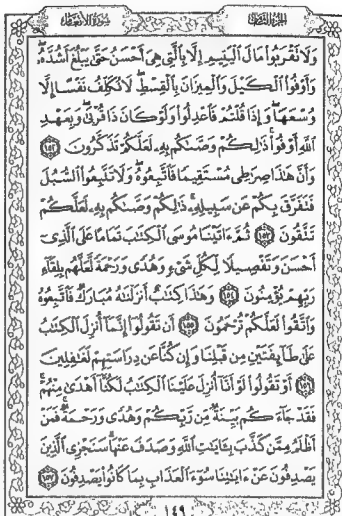 الجزء الثامن
سورة الأنعام
وَلَا تَقْرَبُوا۟ مَالَ ٱلْيَتِيمِ إِلَّا بِٱلَّتِى هِىَ أَحْسَنُ حَتَّىٰ يَبْلُغَ أَشُدَّهُۥ ۖ
وَأَوْفُوا۟ ٱلْكَيْلَ وَٱلْمِيزَانَ بِٱلْقِسْطِ ۖ لَا نُكَلِّفُ نَفْسًا إِلَّا
وُسْعَهَا ۖ وَإِذَا قُلْتُمْ فَٱعْدِلُوا۟ وَلَوْ كَانَ ذَا قُرْبَىٰ ۖ وَبِعَهْدِ
ٱللَّهِ أَوْفُوا۟ ۚ ذَٰلِكُمْ وَصَّىٰكُم بِهِۦ لَعَلَّكُمْ تَذَكَّرُونَ ١٥٢
وَأَنَّ هَٰذَا صِرَٰطِى مُسْتَقِيمًا فَٱتَّبِعُوهُ ۖ وَلَا تَتَّبِعُوا۟ ٱلسُّبُلَ
فَتَفَرَّقَ بِكُمْ عَن سَبِيلِهِۦ ۚ ذَٰلِكُمْ وَصَّىٰكُم بِهِۦ لَعَلَّكُمْ
تَتَّقُونَ ١٥٣ ثُمَّ ءَاتَيْنَا مُوسَى ٱلْكِتَٰبَ تَمَامًا عَلَى ٱلَّذِىٓ
أَحْسَنَ وَتَفْصِيلًا لِّكُلِّ شَىْءٍ وَهُدًى وَرَحْمَةً لَّعَلَّهُم بِلِقَآءِ
رَبِّهِمْ يُؤْمِنُونَ ١٥٤ وَهَٰذَا كِتَٰبٌ أَنزَلْنَٰهُ مُبَارَكٌ فَٱتَّبِعُوهُ
وَٱتَّقُوا۟ لَعَلَّكُمْ تُرْحَمُونَ ١٥٥ أَن تَقُولُوٓا۟ إِنَّمَآ أُنزِلَ ٱلْكِتَٰبُ
عَلَىٰ طَآئِفَتَيْنِ مِن قَبْلِنَا وَإِن كُنَّا عَن دِرَاسَتِهِمْ لَغَٰفِلِينَ
١٥٦ أَوْ تَقُولُوا۟ لَوْ أَنَّآ أُنزِلَ عَلَيْنَا ٱلْكِتَٰبُ لَكُنَّآ أَهْدَىٰ مِنْهُمْ ۚ
فَقَدْ جَآءَكُم بَيِّنَةٌ مِّن رَّبِّكُمْ وَهُدًى وَرَحْمَةٌ ۚ فَمَنْ
أَظْلَمُ مِمَّن كَذَّبَ بِـَٔايَٰتِ ٱللَّهِ وَصَدَفَ عَنْهَا ۗ سَنَجْزِى ٱلَّذِينَ
يَصْدِفُونَ عَنْ ءَايَٰتِنَا سُوٓءَ ٱلْعَذَابِ بِمَا كَانُوا۟ يَصْدِفُونَ ١٥٧
١٤٩